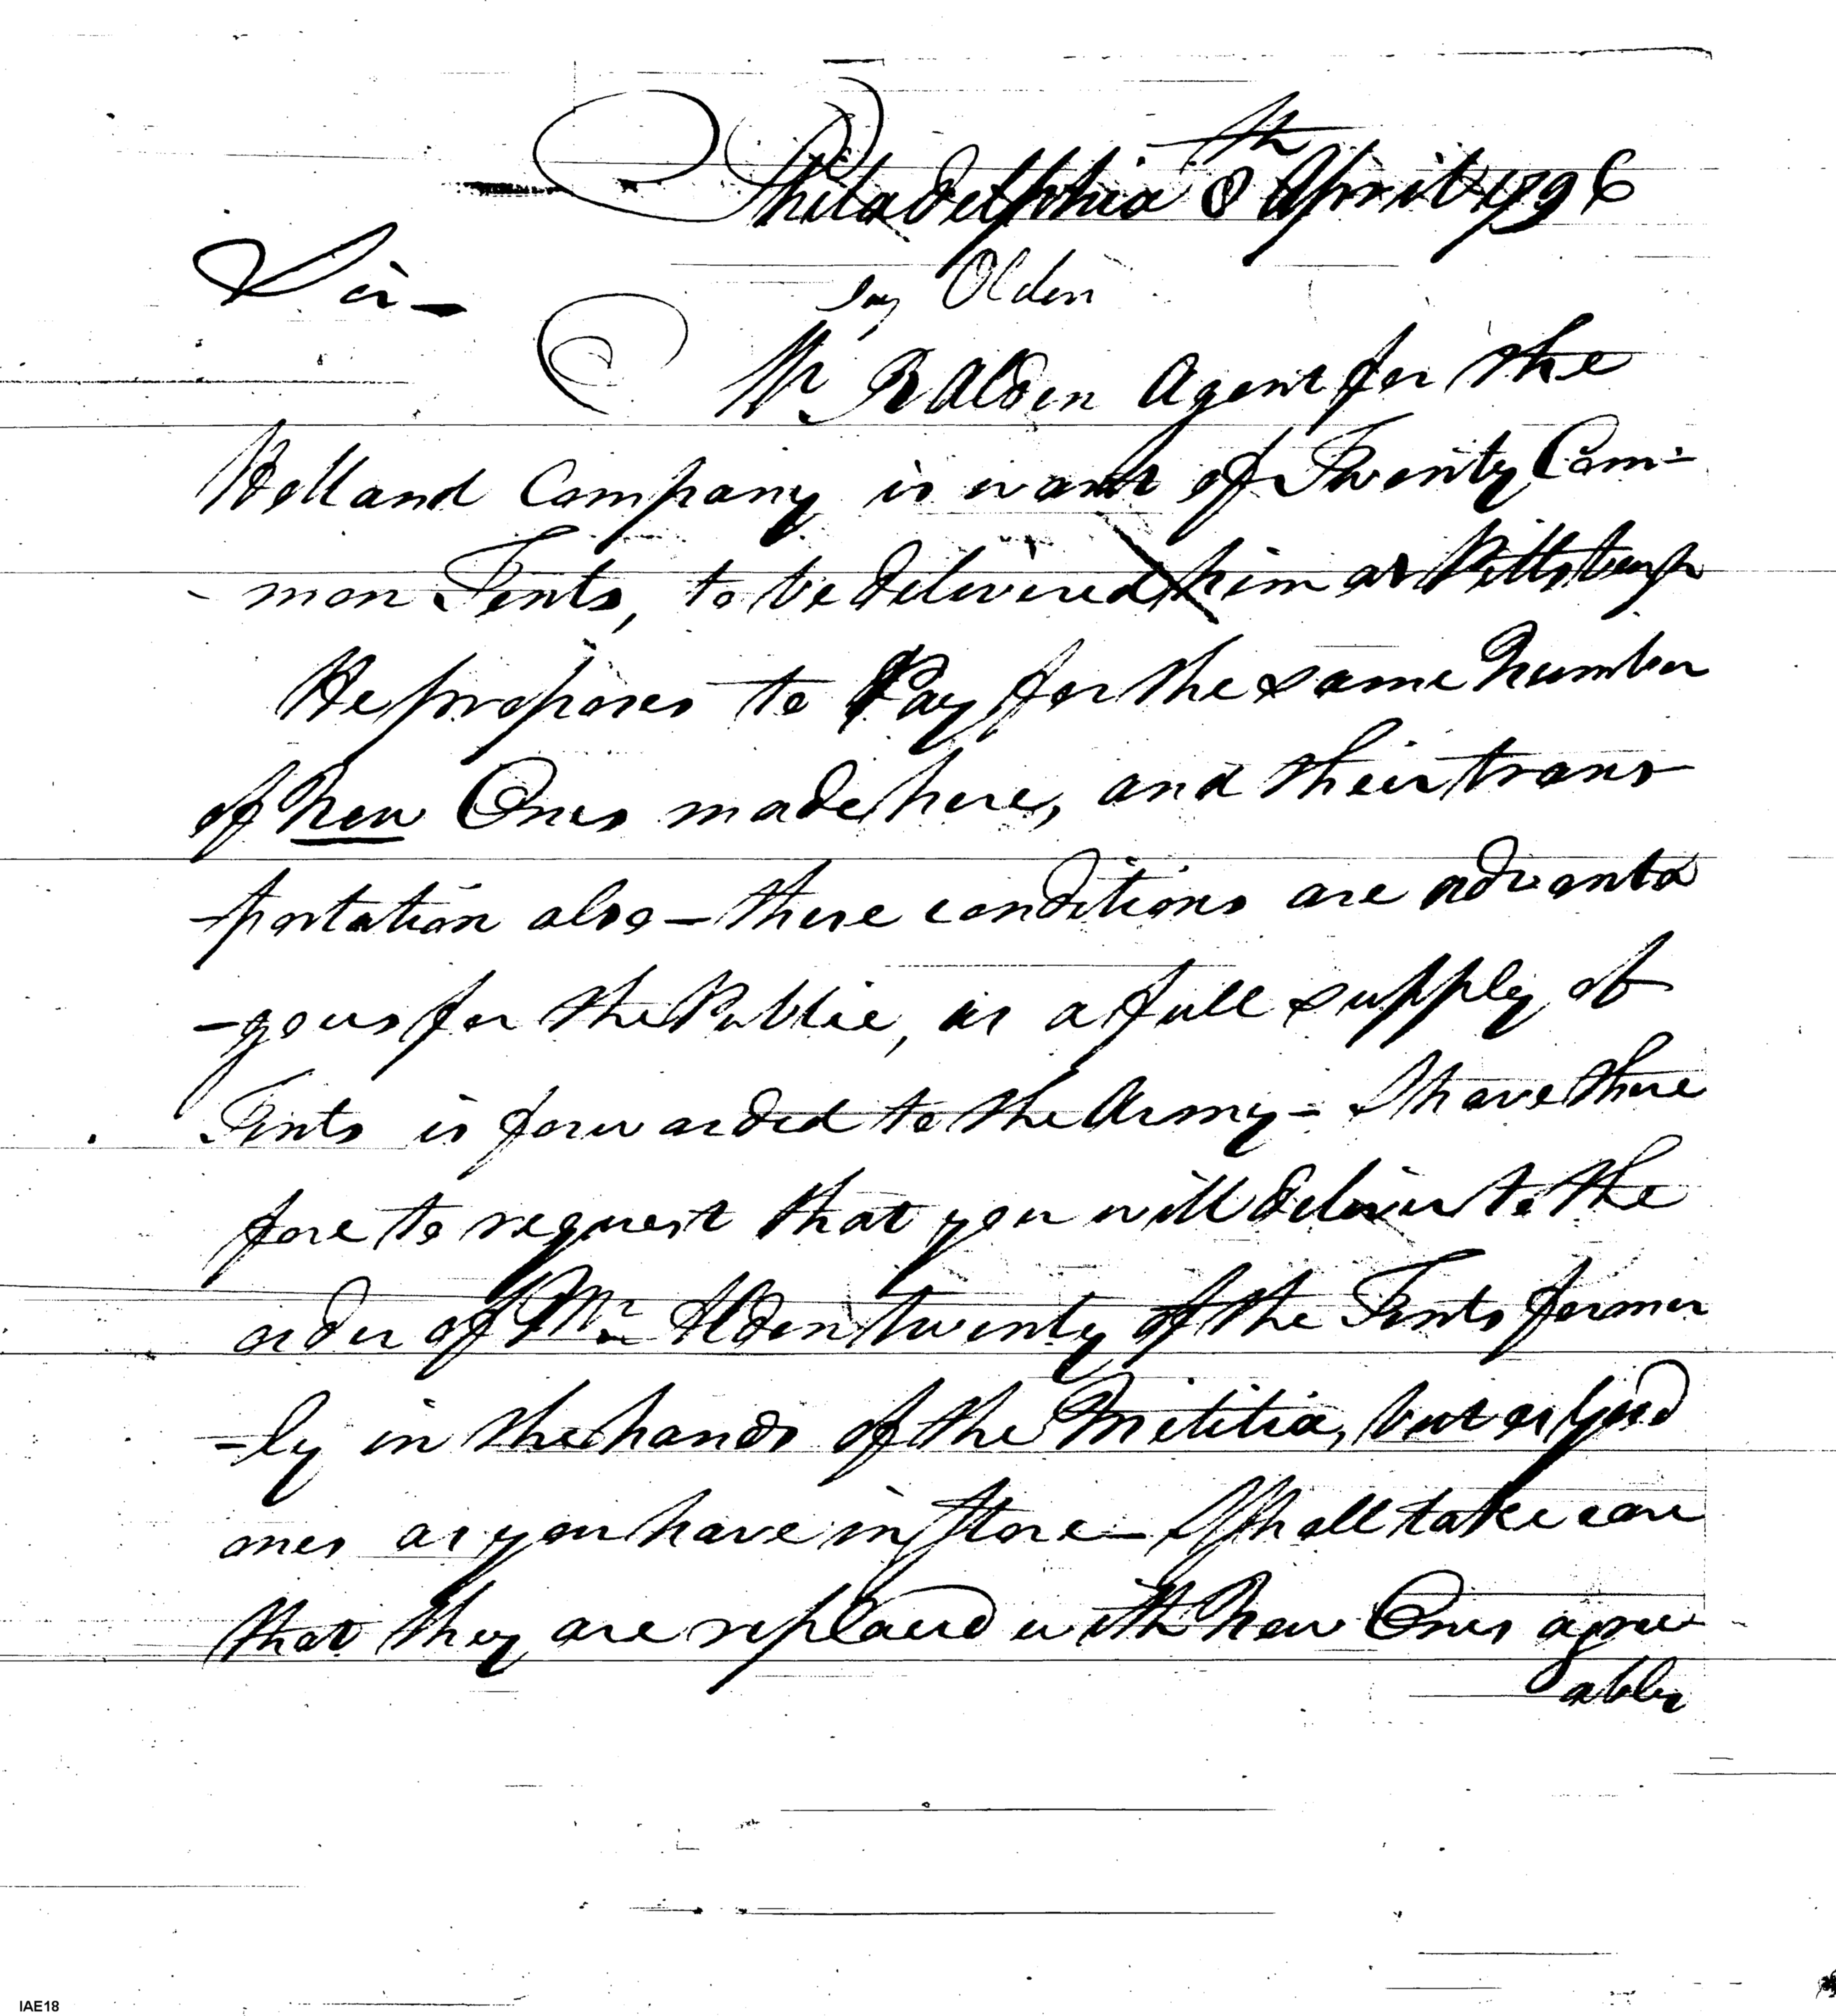 Philadelphia 8th April 1796
Sir –
say Olden
Mr R Alden Agent for the
Holland Company is want of Twenty Com-
-mon Tents, to be delivered him at Pittsburgh
He proposes to Pay for the same Number
of New Ones made here, and their trans
-portation also – these conditions are advanta
-gous for the Public, as a full supply of
Tents is forwarded to the Army – I have there
fore to request that you will deliver to the
order of Mr Alden twenty of the Tents former
-ly in the hands of the Militia, but as good
ones as you have in Store – I shall take care
that they are replaced with New Ones agree
ably
IAE18